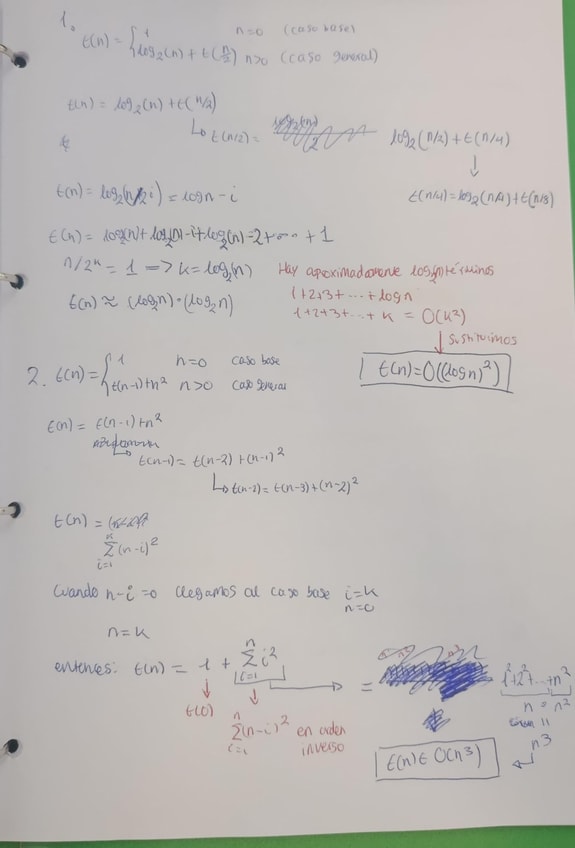 1. t(n) = { 1 n=0 (caso base)
log₂(n) + t(n/2) n>0 (caso general)
t(n) = log₂(n) + t(n/2)
↳ t(n/2) = log₂(n/2) + t(n/4)
↓
t(n/4) = log₂(n/4) + t(n/8)
t(n) = log₂(n/2i) = log n - i
t(n) = log₂(n) + log₂(n) - 1 + log₂(n) - 2 + ... + 1
n/2ᵏ = 1 → k = log₂(n) Hay aproximadamente log₂(n) términos
t(n) ≈ (log₂n) · (log₂n) 1+2+3+...+log n
1+2+3+...+k = O(k²)
↓ sustituimos
t(n) = O((log n)²)
2. t(n) = { 1 n=0 caso base
t(n-1)+n² n>0 caso general
t(n) = t(n-1)+n²
↳ t(n-1) = t(n-2) + (n-1)²
↳ t(n-2) = t(n-3) + (n-2)²
t(n) =
∑ᵢ₌₁ᵏ (n-i)²
Cuando n-i=0 llegamos al caso base i=k
n=0
n=k
entonces: t(n) = 1 + ∑ᵢ₌₁ⁿ i² → = 1²+2²+...+n²
n · n²
↓ ↓ n³
t(0) ∑ᵢ₌₁ⁿ (n-i)² en orden inverso
t(n) ∈ O(n³)